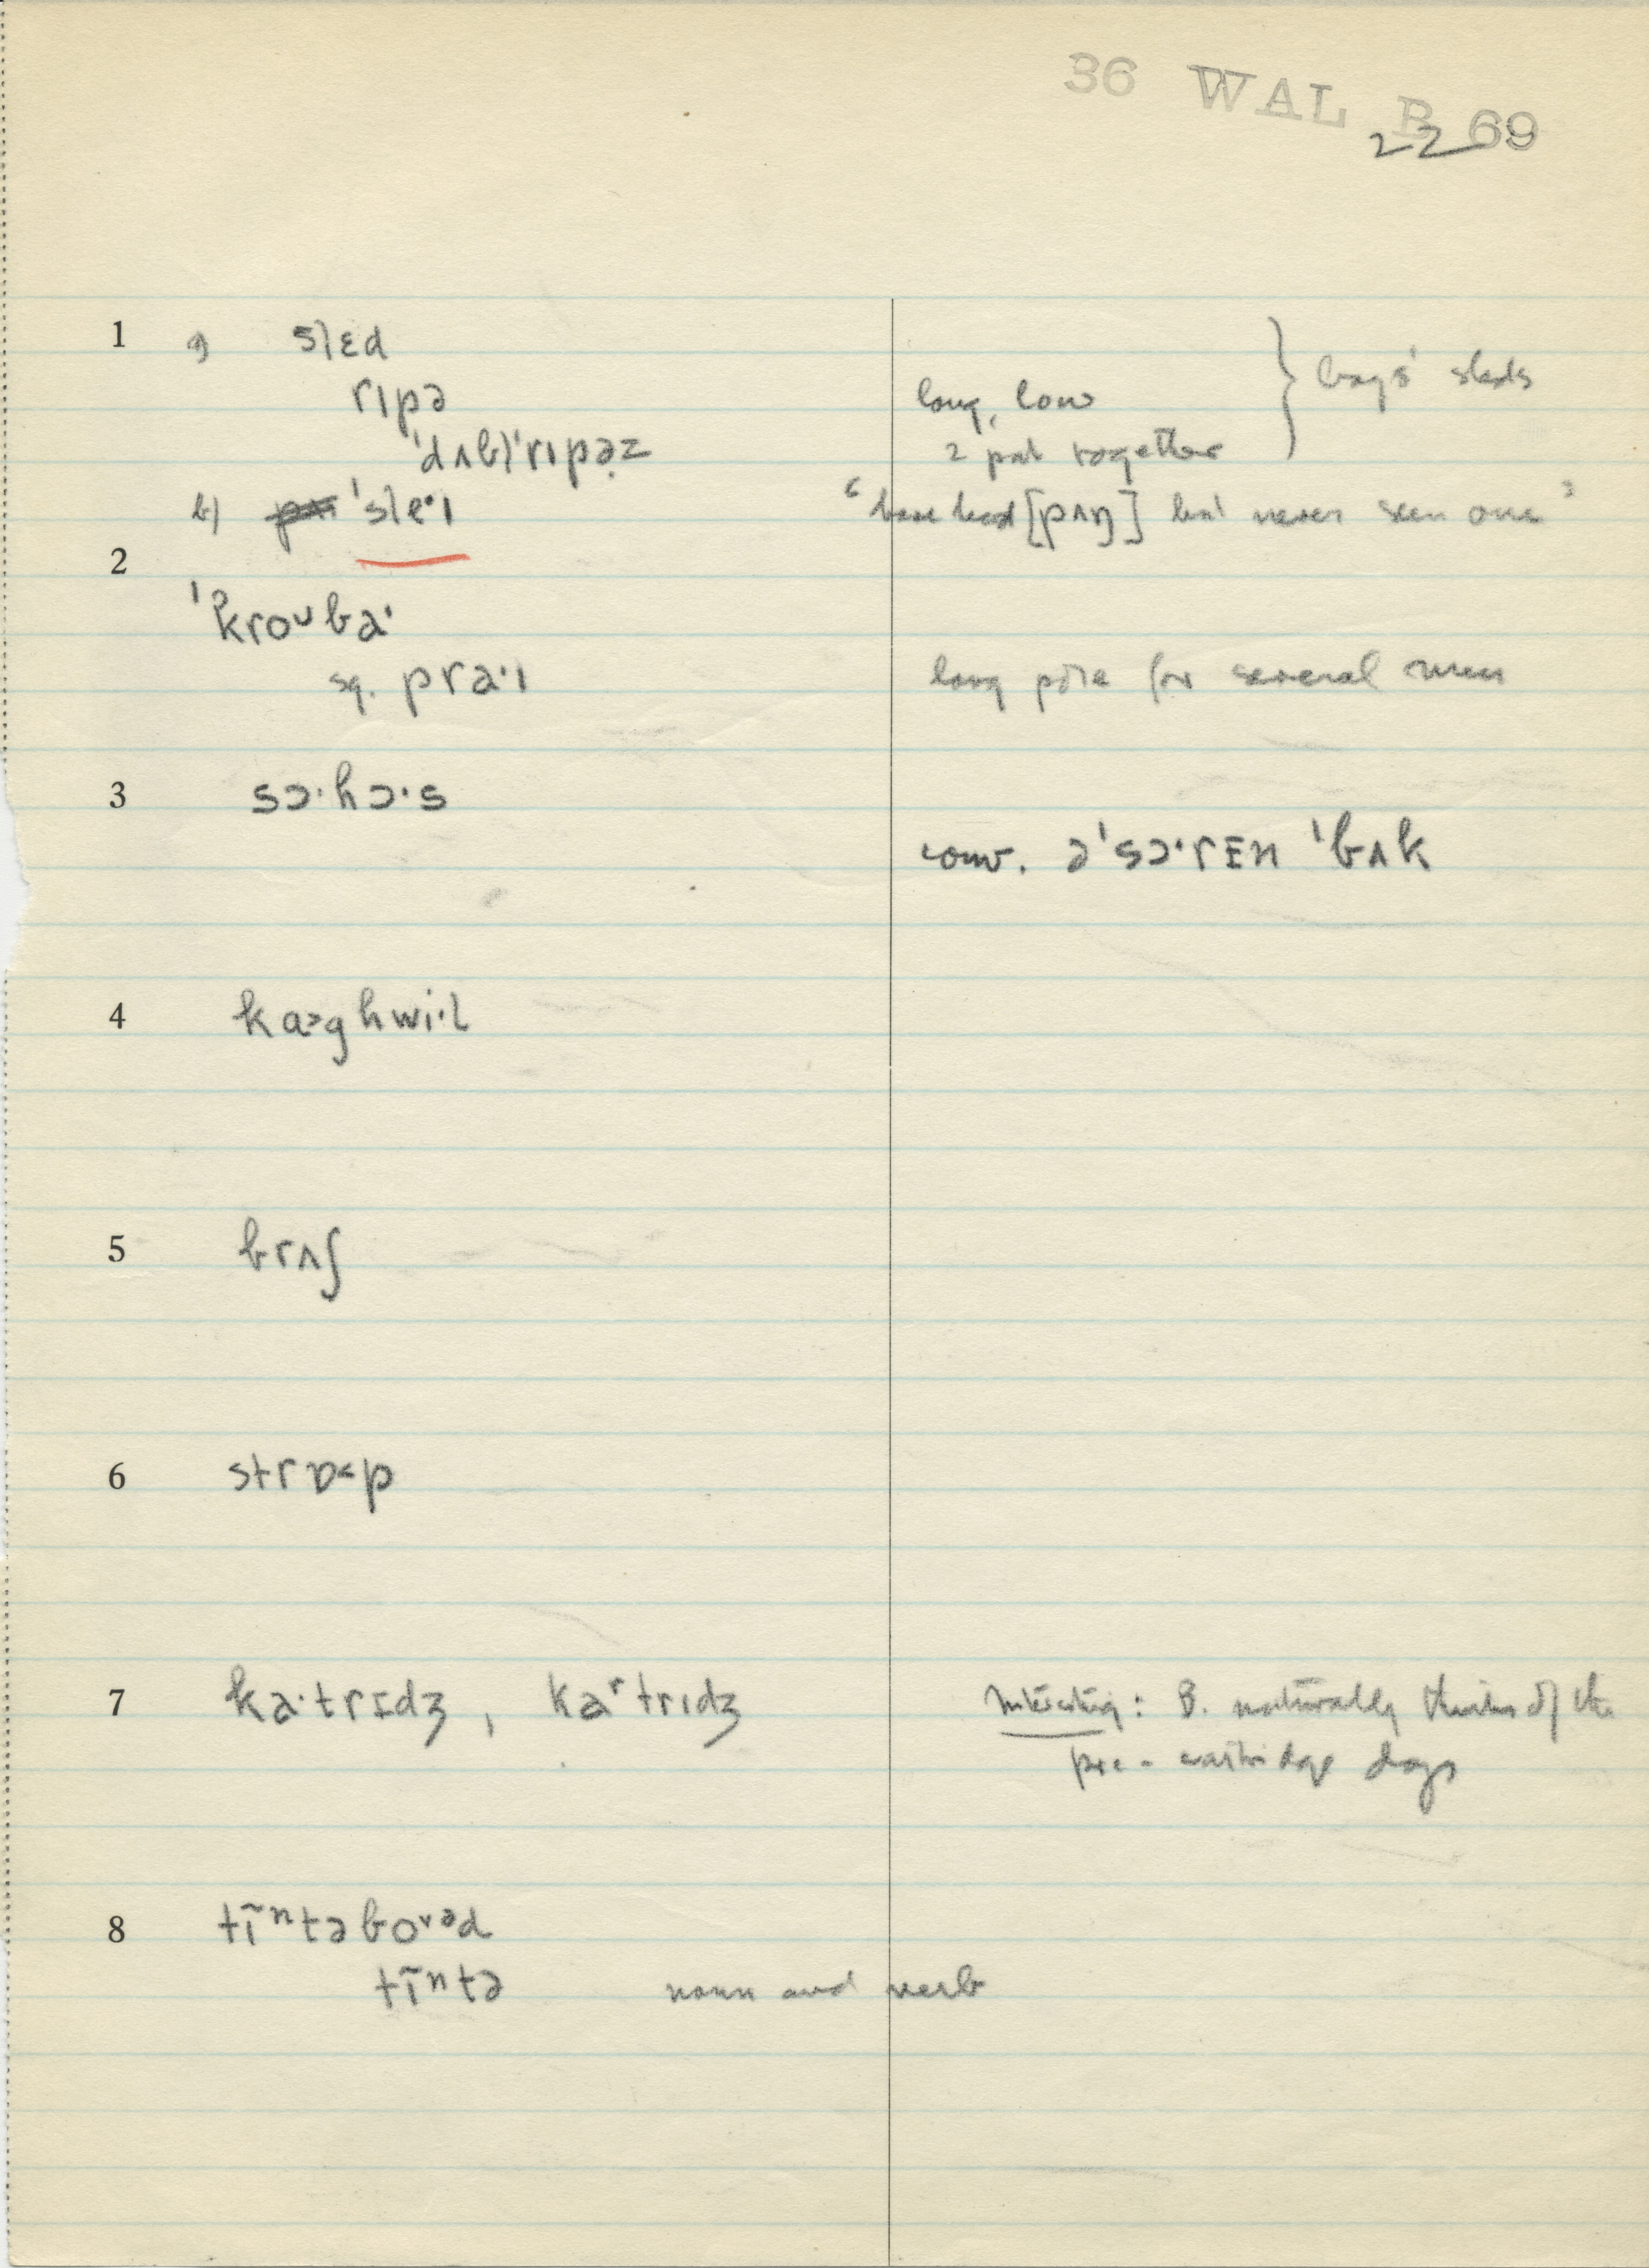 36 WAL B 69
22
1 a) slɛd
rɪpə long, low } boys' sleds
ˈdʌbl̩ˈrɪpəz 2 put together
b) ˈsle·ɪ "have heard [pʌŋ] but never seen one"
2
ˈkroᴜba·
sq. pra·ɪ long pole for several men
3 sɔ·hɔ·s
conv. əˈsɔ·rɪn ˈbʌk
4 ka>ghwi·l
5 brʌʃ
6 strɒ<p
7 ka·trɪdʒ, kaʳtrɪdʒ Interesting: B. naturally thinks of the
pre-cartridge days
8 tĩⁿtəboᵛᵊd
tĩⁿtə noun and verb